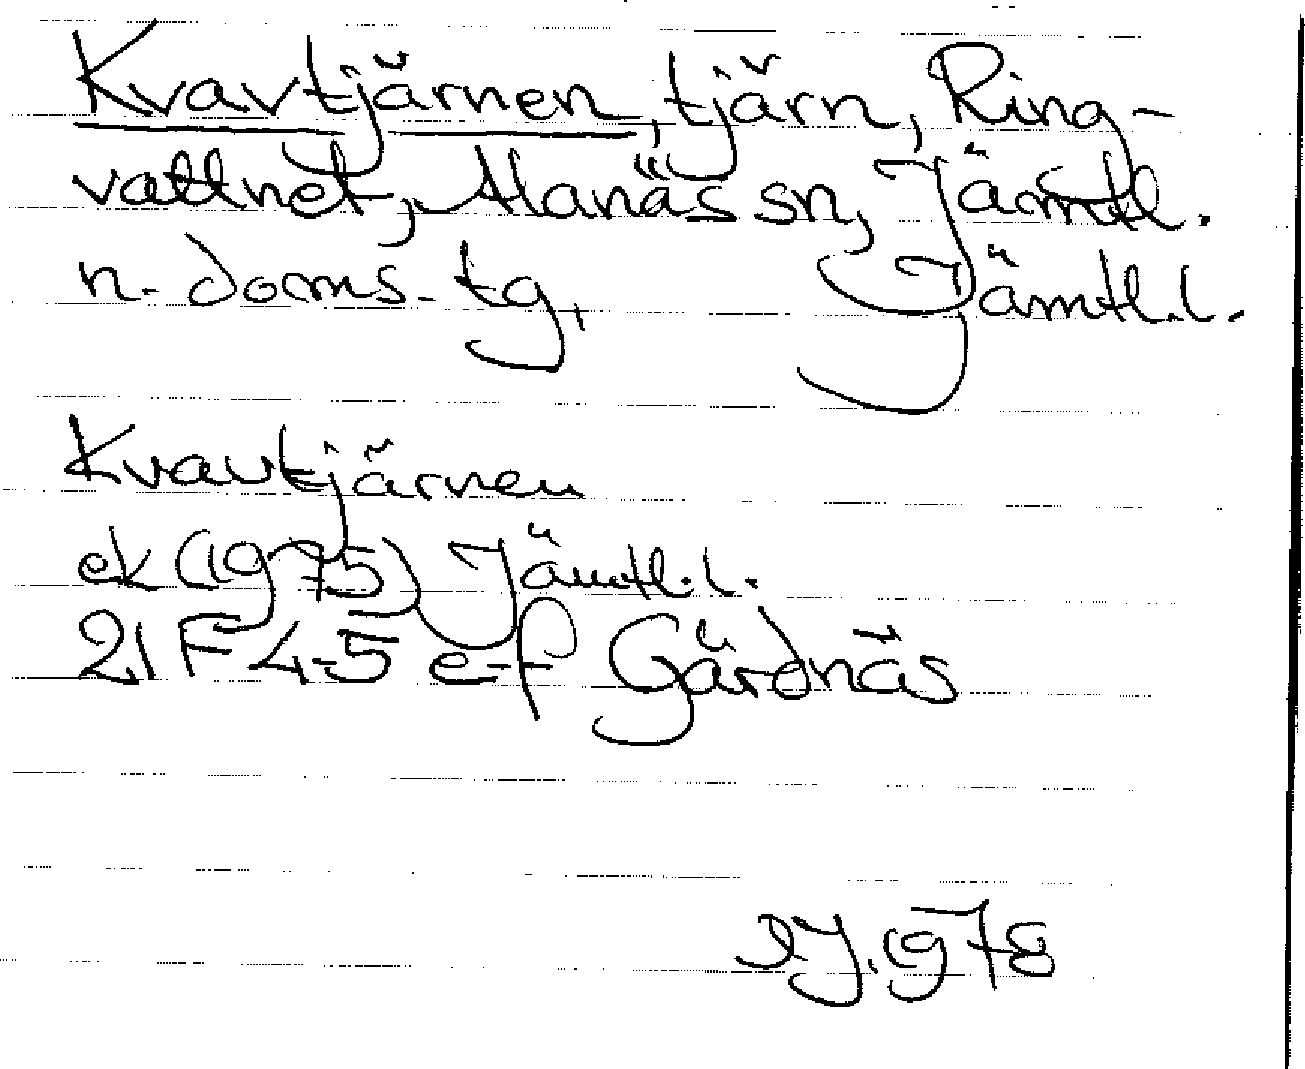 Kvavtjärnen, tjärn, Ring-
vattnet, Alanäs sn, Jämtl.
n. doms. tg, Jämtl.l.
Kvavtjärnen
ek (1975) Jämtl.l.
21 F 4-5 e-f Gärdnäs
1978